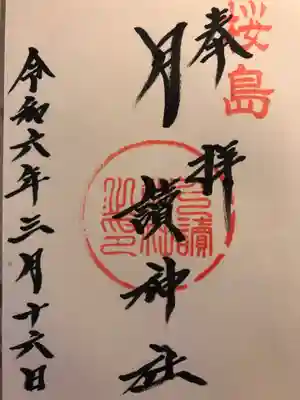 桜島
奉拝
月讀神社
令和六年三月十六日